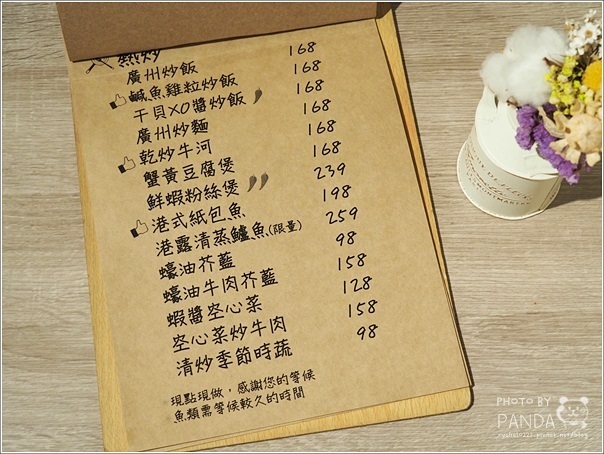 熱炒
廣州炒飯 168
鹹魚雞粒炒飯 168
干貝XO醬炒飯 168
廣州炒麵 168
乾炒牛河 168
蟹黃豆腐煲 168
鮮蝦粉絲煲 239
港式紙包魚 198
港露清蒸鱸魚(限量) 259
蠔油芥藍 98
蠔油牛肉芥藍 158
蝦醬空心菜 128
空心菜炒牛肉 158
清炒季節時蔬 98
現點現做，感謝您的等候
魚類需等候較久的時間
PHOTO BY
PANDA